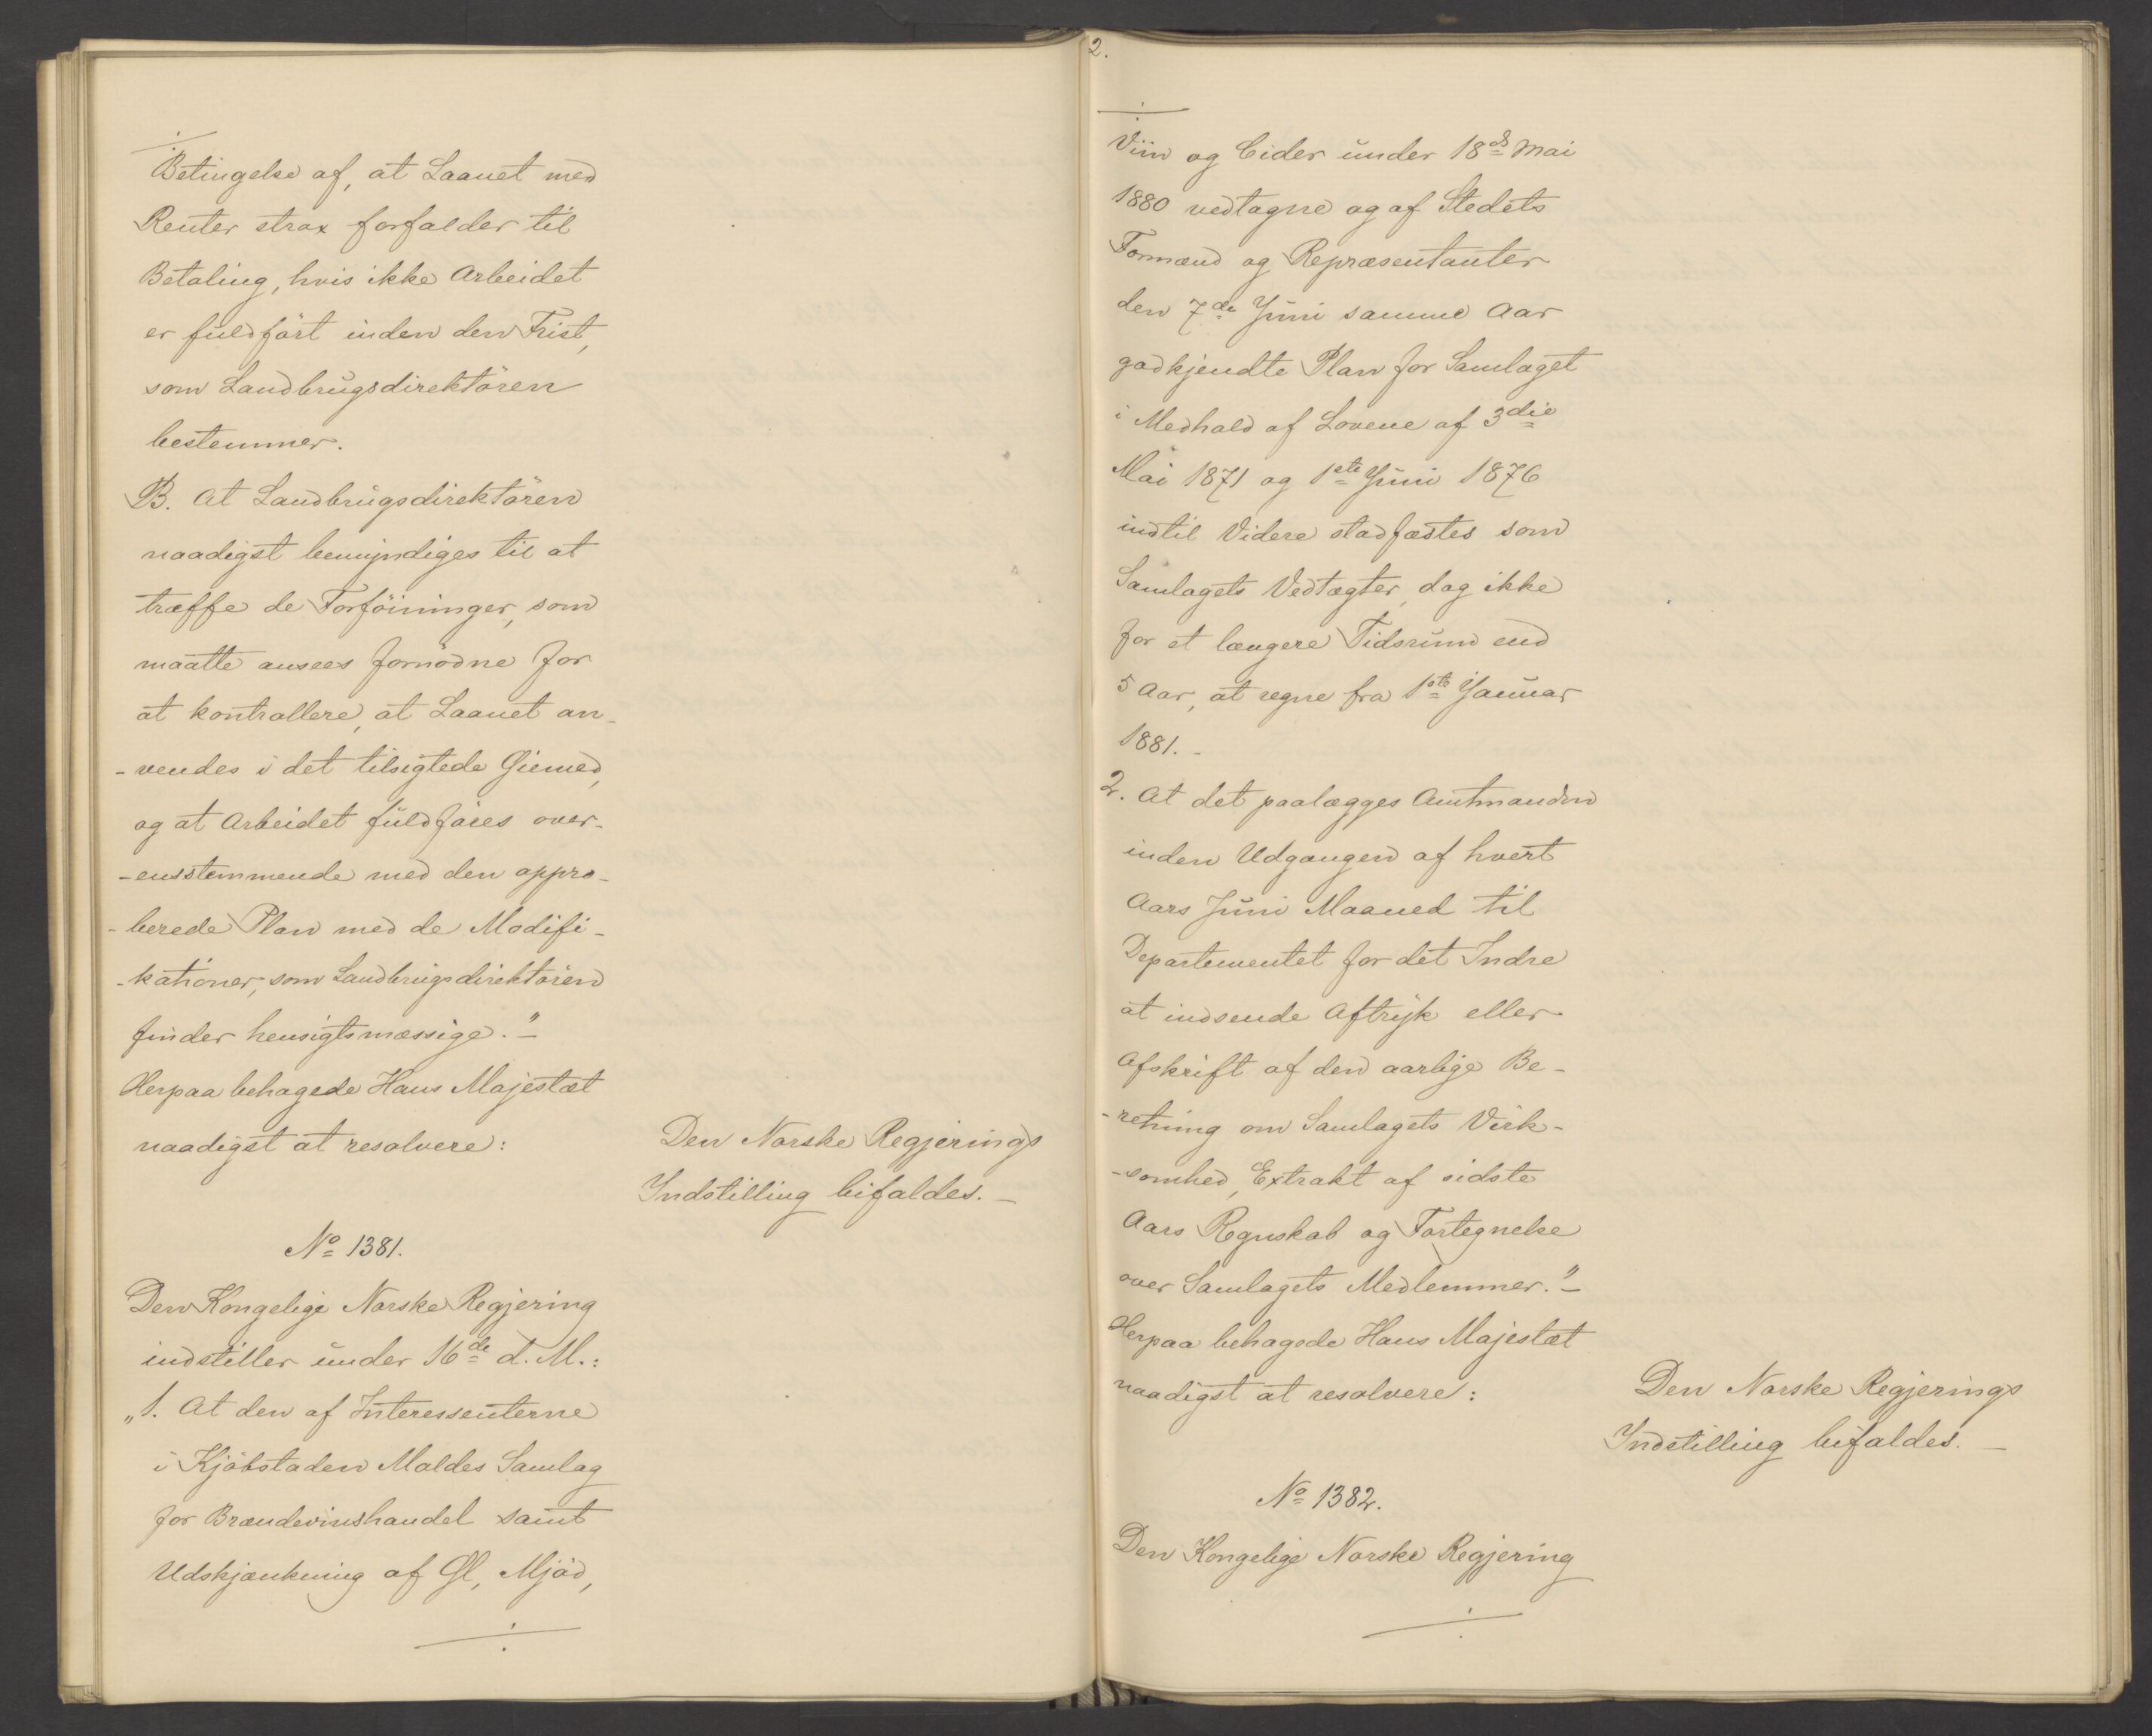 Betingelse af, at Laanet med
Renter strax forfalder til
Betaling, hvis ikke Arbeidet
er fuldfört inden den Frist,
som Landbrugsdirektören
bestemmer.
B. At Landbrugsdirektören
naadigst bemyndiges til at
træffe de Forföininger, som
maatte ansees fornödne for
at kontrollere, at Laanet an-
-vendes i det tilsigtede Øiemed,
og at Arbeidet fuldföres over-
-ensstemmende med den appro-
-berede Plan med de Modifi-
-kationer, som Landbrugsdirektören
finder hensigtsmæssige."-
Herpaa behagede Hans Majestæt
naadigst at resolvere:
Den Norske Regjerings
Indstilling bifaldes.-
No 1381.
Den Kongelige Norske Regjering
indstiller under 16de d. M.:
"1. At den af Interessenterne
i Kjöbstaden Moldes Samlag
for Brændevinshandel samt
Udskjænkning af Øl, Mjöd,
2.
Viin og Cider under 18de Mai
1880 vedtagne og af Stedets
Formænd og Repræsentanter
den 7de Juni samme Aar
godkjendte Plan for Samlaget
i Medhold af Lovene af 3die
Mai 1871 og 1ste Juni 1876
indtil Videre stadfæstes som
Samlagets Vedtægter, dog ikke
for et længere Tidsrum end
5 Aar, at regne fra 1ste Januar
1881.-
2. At det paalægges Amtmanden
inden Udgangen af hvert
Aars Juni Maaned til
Departementet for det Indre
at indsende Aftryk eller
Afskrift af den aarlige Be-
-retning om Samlagets Virk-
-somhed, Extrakt af sidste
Aars Regnskab og Fortegnelse
over Samlagets Medlemmer."-
Herpaa behagede Hans Majestæt
naadigst at resolvere:
Den Norske Regjerings
Indstilling bifaldes.-
No 1382.
Den Kongelige Norske Regjering